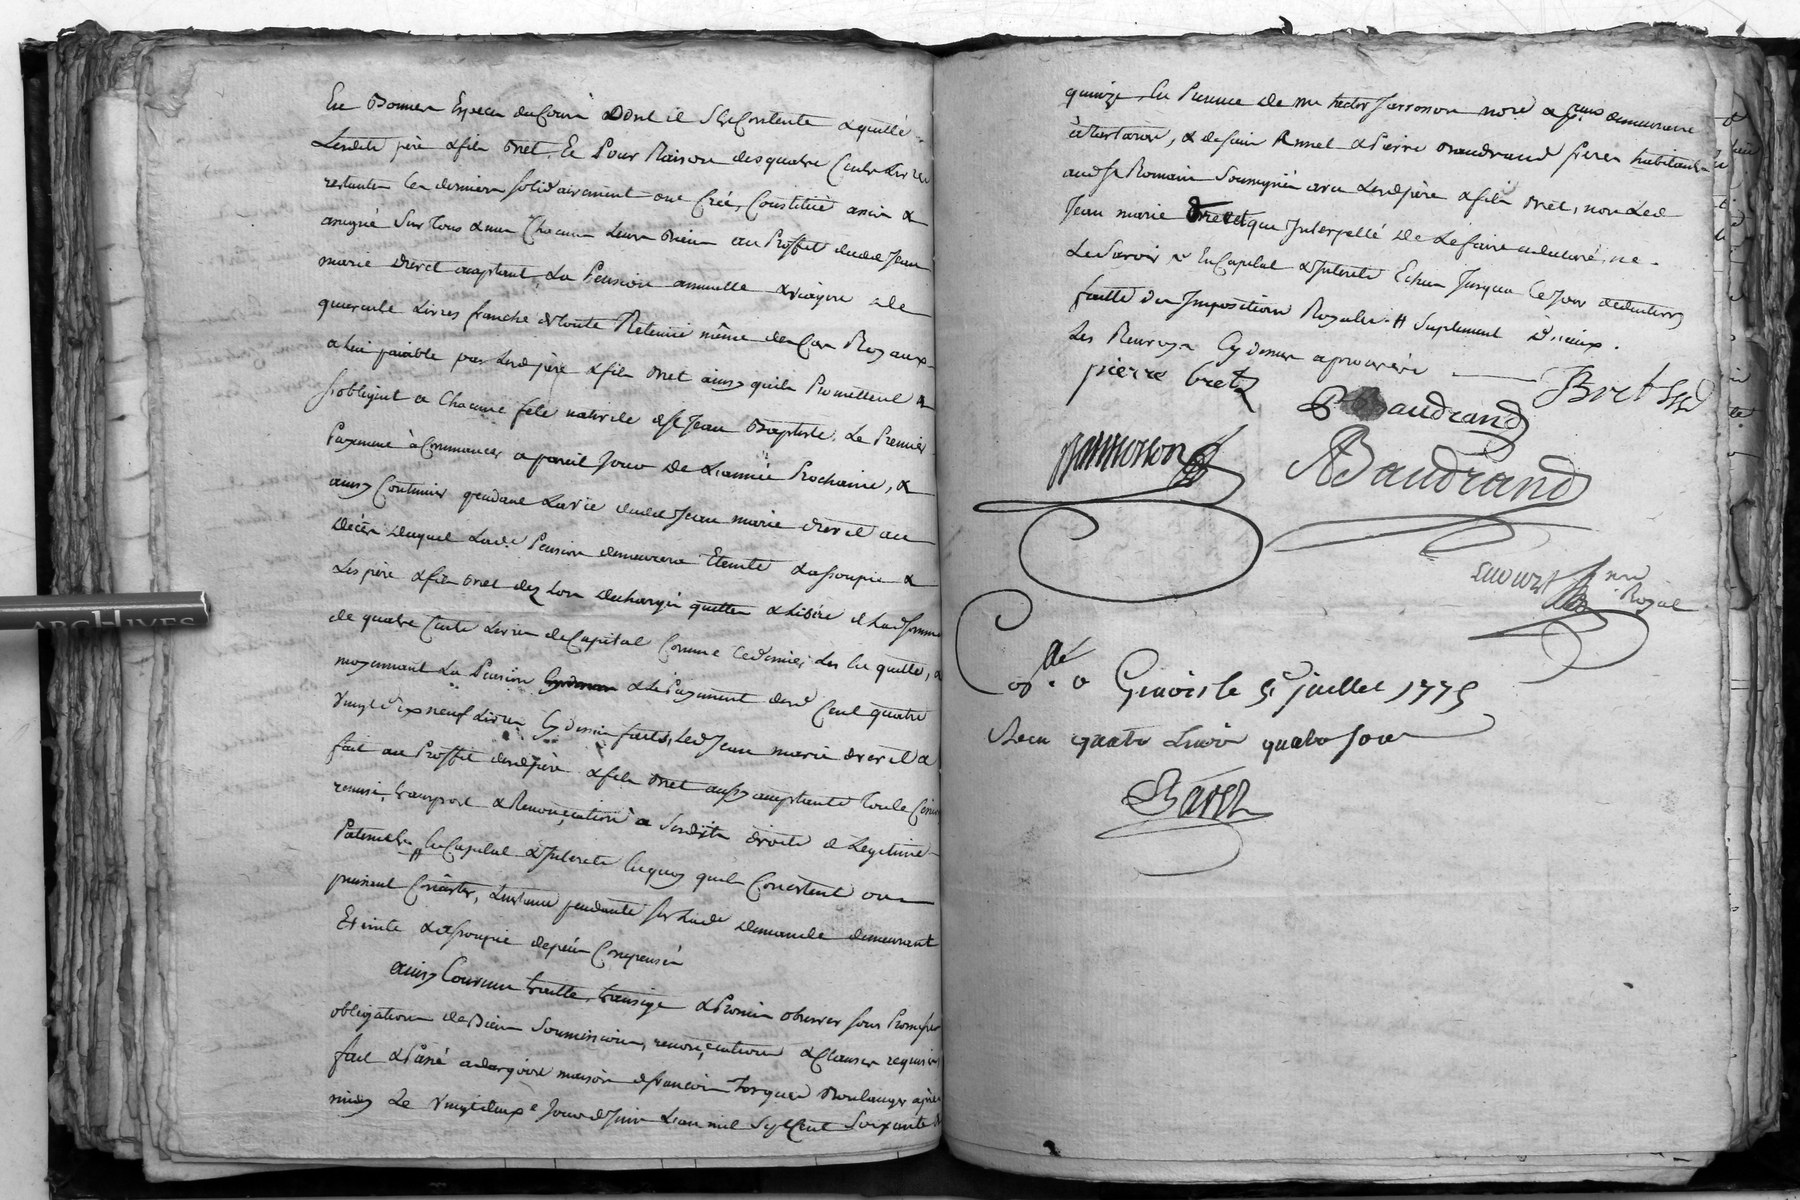 En Bonnes Espèces du Cours Dont il Se Contente & quitte
Lesdits père & fils Bret. Et Pour Raison des quatre Cents Livres
restantes ces derniers solidairement ont Créé, Constitué assis &
assigné Sur tous & un Chacuns Leurs Biens au Proffit dudt Jean
marie Drevet acceptant, La Pension annuelle & viagère de
quarante Livres franche de toute Retenue même des Cas Royaux
a lui paiable par Lesd père & fils Bret ainsy qu'ils Promettent &
s'obligent a Chacune fete nativité de St Jean Baptiste. Le Premier
Payement à Commencer a pareil Jour De L'année Prochaine, &
ainsy Continuer pendant La vie dudt Jean marie Drevet au
Décès Duquel Lade Pension demeurera Eteinte & assoupie &
Les père & fils Bret dez Lors Dechargés quittes & Libérés de Lad somme
de quatre Cents Livres de Capital Comme Ce dernier Les en quitte, &
moyennant La Pension & Le Payement desd Cent quatre
Vingt Dix neuf Livres Cy dessus faits, Led Jean marie Drevet a
fait au Proffit desd père & fils Bret aussy acceptants Toute Cession
remise, transport & Renonciation à Sesdits droits de Legitime
Paternelle H En Capital & Interets en quoy quels Consistent ou
puissent Consister, L'instance pendante sur Lade Demande demeurant
Eteinte & assoupie depens Compensés
ainsy Convenu traitté, transigé & Promis observer sous Promesses
obligation de Biens Soumissions, renonciations & Clauses requises
fait & Passé a maison de françois Boulanger après
midy Le Vingtdeuxe Jour de Juin L'an mil Sept Cent Soixante &
quinze En Presence de me hector Jarrosson nore & demeurant
à tartaras, & de sieurs Annet & Pierre Baudrand freres habitants
aud St Romain Soussignés avec Lesd père & fils Bret, non Led
Jean marie Drevet que Interpellé De Le faire a declaré ne
Le Savoir H En Capital & Interets Echus Jusqu'a Ce Jour deduction
faitte des Impositions Royales H Suplement D'iceux.
Les Renvoys Cy dessus aprouvés
pierre bret
JBret
P Baudrand
Jarrosson
ABaudrand
nre Royal
Clé
a Givors le 5e juillet 1775
Recu quatre Livres quatre sous